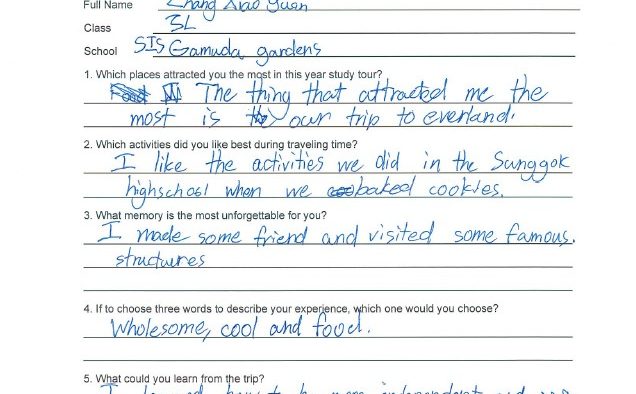 Full Name Zhang Xiao Yuan
Class 3L
School SIS Gamuda gardens
1. Which places attracted you the most in this year study tour?
The thing that attracted me the
most is our trip to everland.
2. Which activities did you like best during traveling time?
I like the activities we did in the Sunggok
highschool when we baked cookies.
3. What memory is the most unforgettable for you?
I made some friend and visited some famous.
structures
4. If to choose three words to describe your experience, which one would you choose?
Wholesome, cool and food.
5. What could you learn from the trip?
I learned how to be more independent and